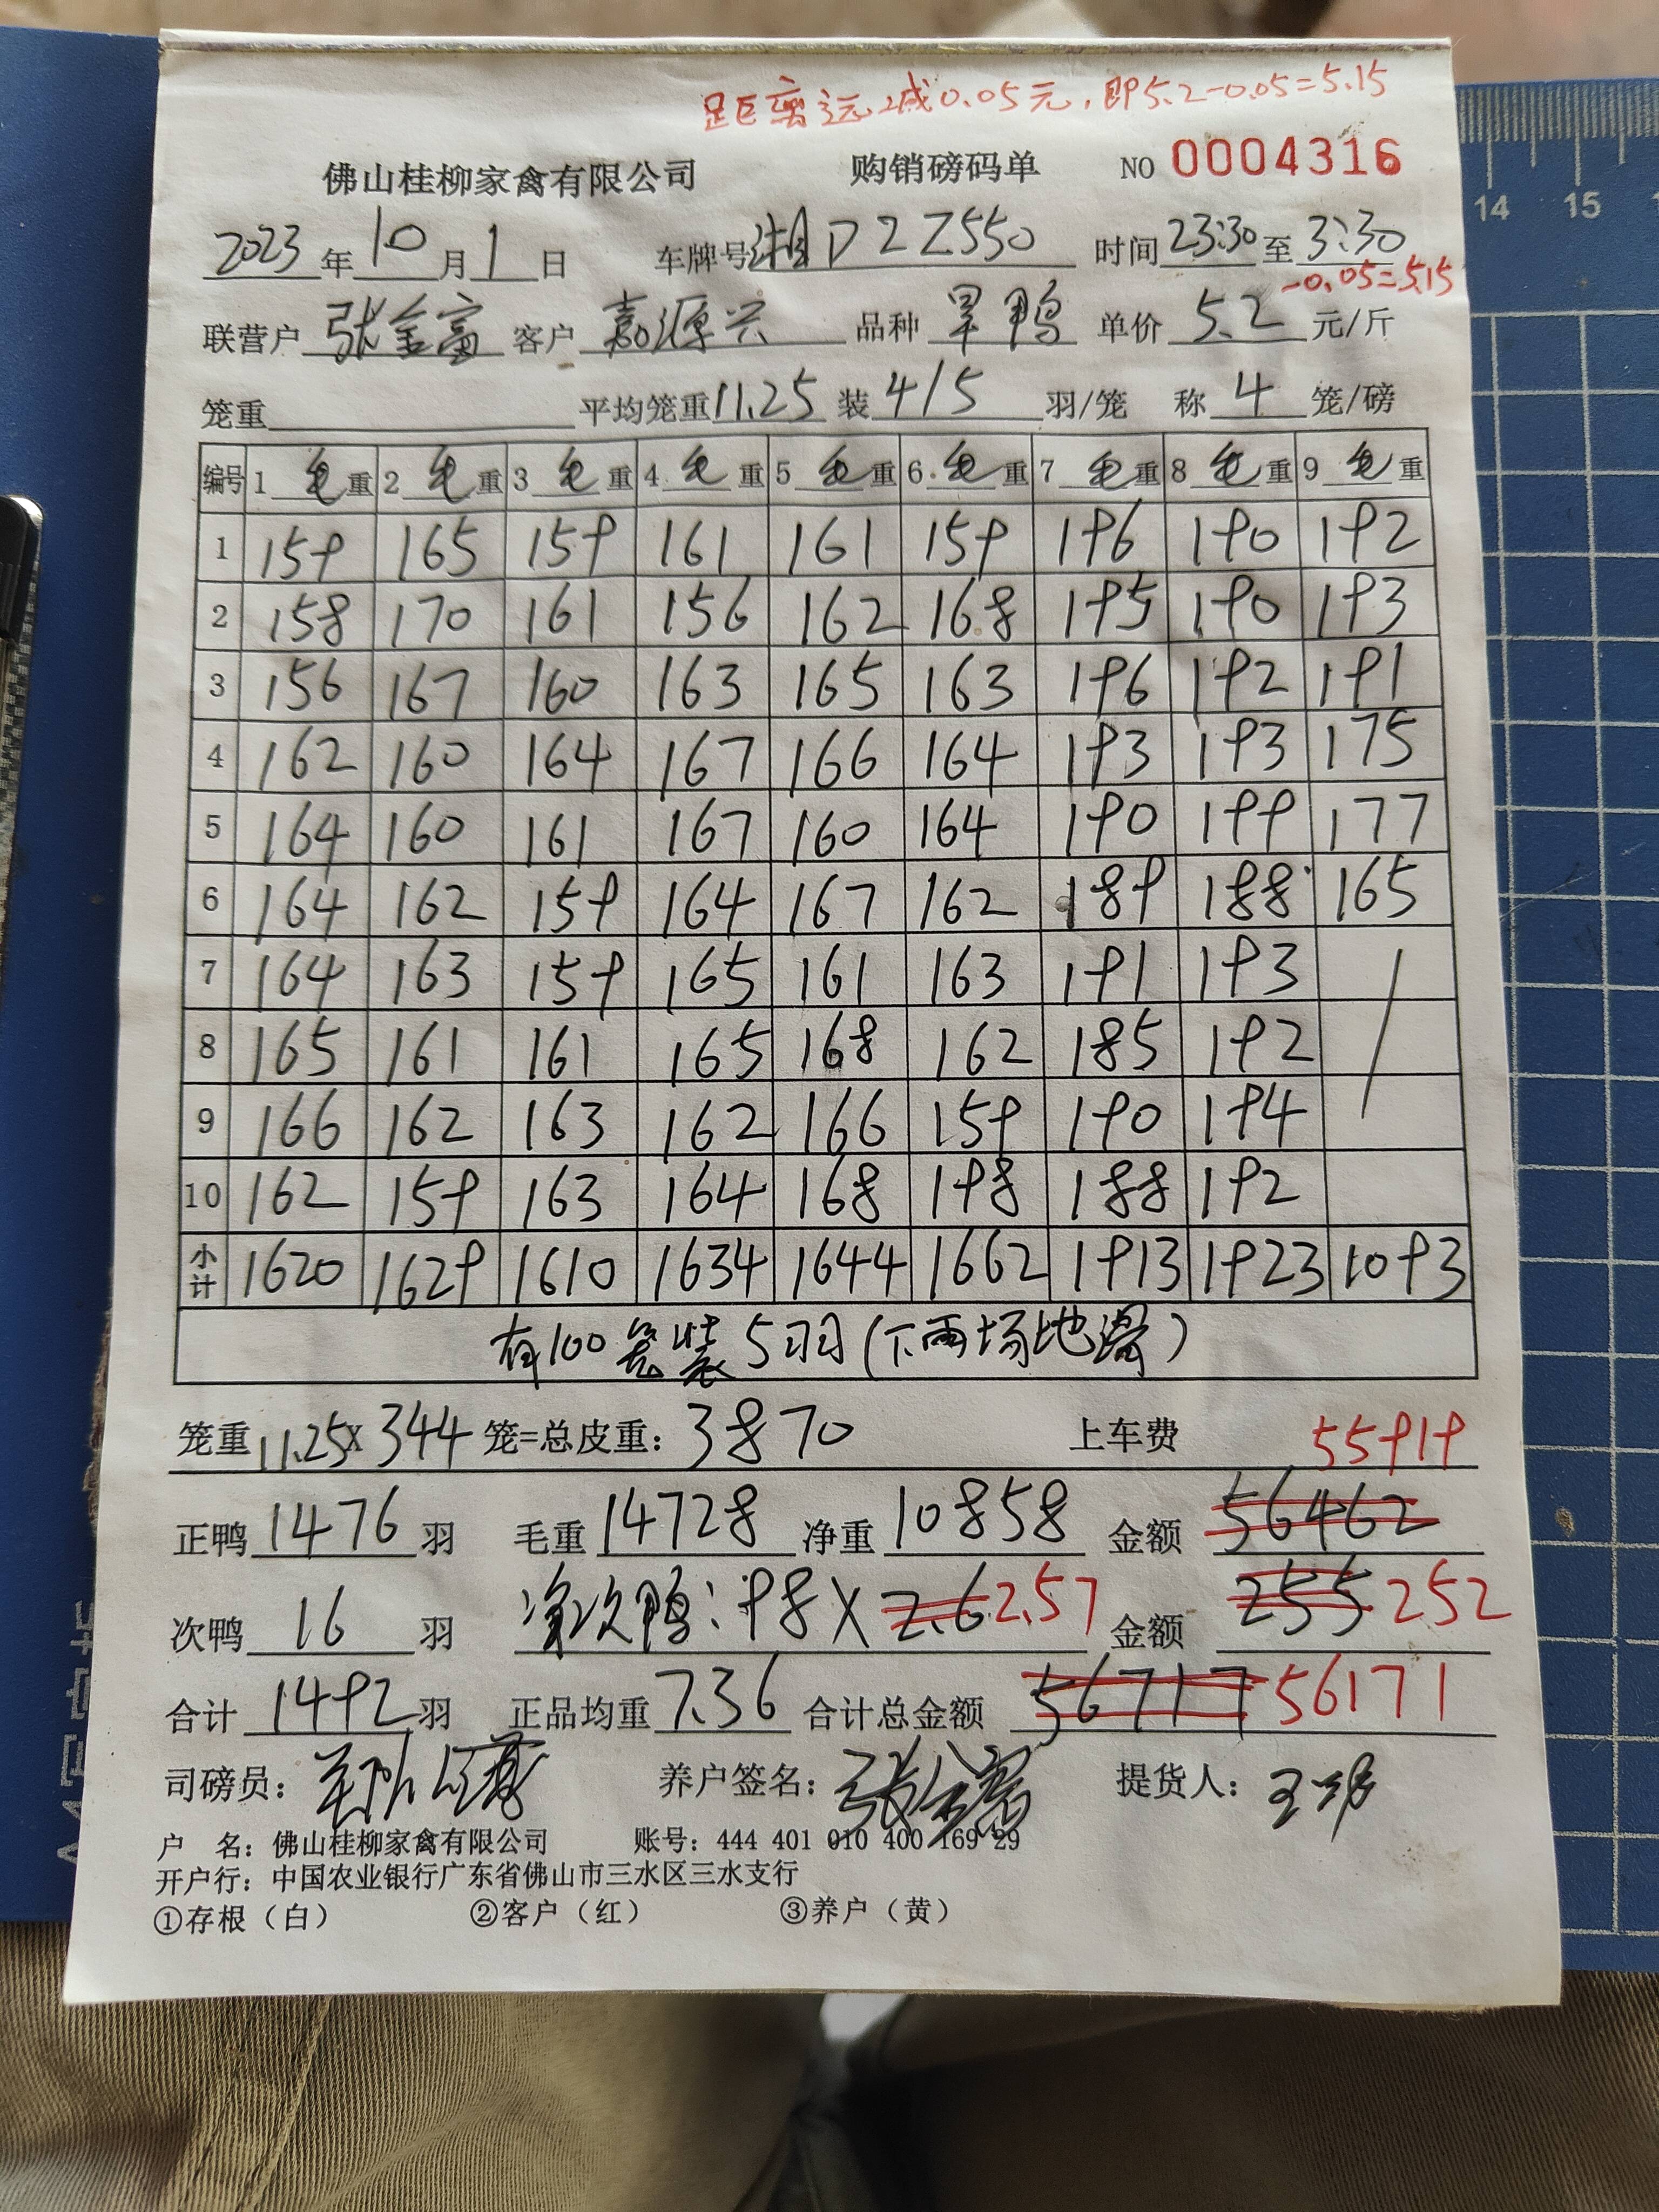 距离远减0.05元,即5.2-0.05=5.15
佛山桂柳家禽有限公司 购销磅码单 NO 0004316
2023年10月1日 车牌号湘D2Z550 时间23:30至3:30
-0.05=5.15
联营户 张金富 客户 嘉源兴 品种 旱鸭 单价 5.2 元/斤
笼重 平均笼重11.25 装4/5 羽/笼 称4笼/磅
编号 1毛重 2毛重 3毛重 4毛重 5毛重 6.毛重 7毛重 8毛重 9毛重
1 159 165 159 161 161 159 196 190 192
2 158 170 161 156 162 168 195 190 193
3 156 167 160 163 165 163 196 192 191
4 162 160 164 167 166 164 193 193 175
5 164 160 161 167 160 164 190 199 177
6 164 162 159 164 167 162 189 188 165
7 164 163 159 165 161 163 191 193
8 165 161 161 165 168 162 185 192
9 166 162 163 162 166 159 190 194
10 162 159 163 164 168 198 188 192
小计 1620 1629 1610 1634 1644 1662 1913 1923 1093
有100笼装5羽(下雨场地滑)
笼重11.25X344笼=总皮重:3870 上车费 55919
正鸭1476羽 毛重14728 净重10858 金额 56462
次鸭16羽 次鸭:98X2.6 2.57 金额 255 252
合计1492羽 正品均重7.36 合计总金额 56717 56171
司磅员: 养户签名:张金富 提货人:
户 名:佛山桂柳家禽有限公司 账号:444 401 010 400 169 29
开户行:中国农业银行广东省佛山市三水区三水支行
①存根(白) ②客户(红) ③养户(黄)
14 15